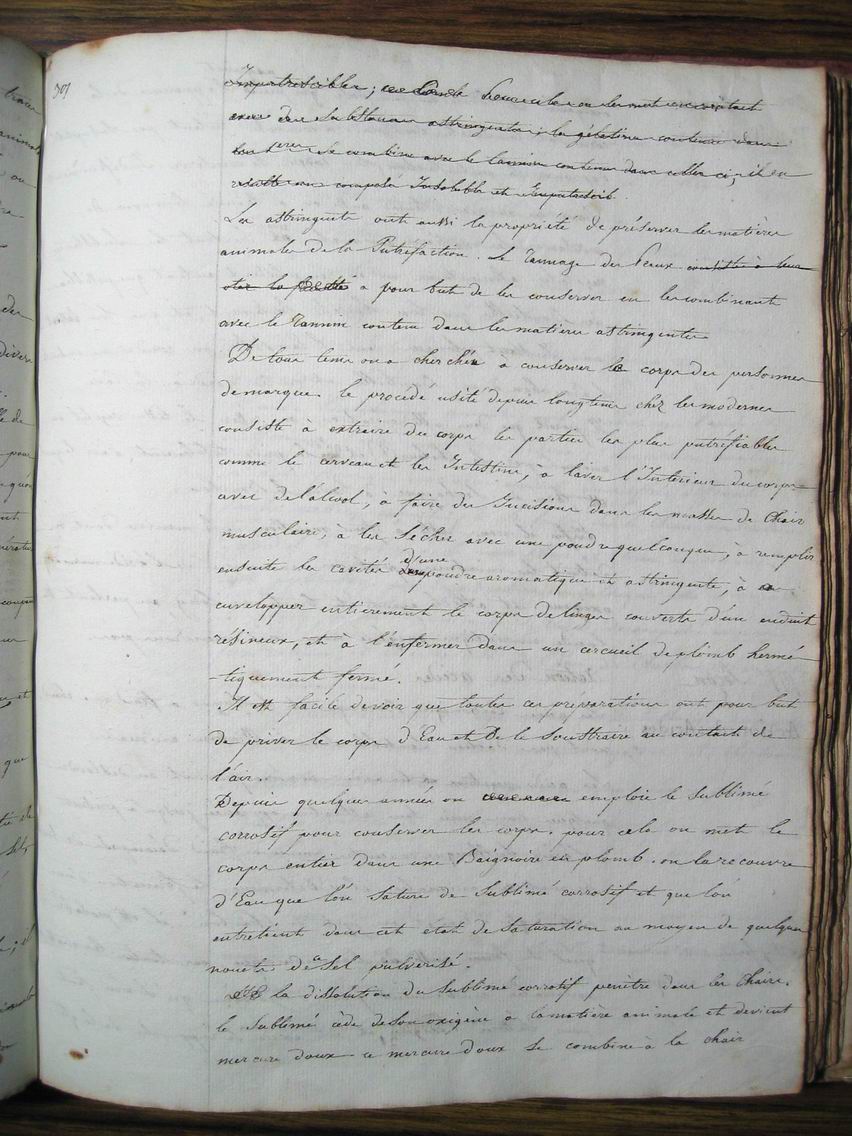 301
Imputrescibles ; Peaux les met en contact
avec des substances astringentes ; la gélatine contenue dans
les peaux se combine avec le tannin contenu dans celles ci, il en
résulte un composé Insoluble et Imputrescib.
Les astringents ont aussi la propriété de préserver les matières
animales de la Putréfaction. Le Tannage des Peaux consiste à leur
ôter la a pour but de les conserver en les combinants
avec le Tannin contenu dans les matieres astringentes
De tous tems on a cherché a conserver le corps des personnes
de marque. le procédé usité depuis longtems chez les modernes
consiste à extraire du corps les parties les plus putréfiables
comme le cerveau et les Intestins, à laver l'Interieur du corps
avec de l'alcool, à faire des Incisions dans les masses de Chair
musculaire, à les sécher avec une poudre quelconque, à remplir
ensuite les cavités d'une poudre aromatique et astringente, à
envelopper entierement le corps de linges couverts d'un enduit
résineux, et à l'enfermer dans un cercueil de plomb hermé
-tiquement fermé.
Il est facile de voir que toutes ces préparations ont pour but
de priver le corps d'Eau et De le soustraire au contact de
l'air.
Depuis quelques années on emploie le sublimé
corrosif pour conserver les corps. pour cela on met le
corps entier dans une Baignoire en plomb. on la recouvre
d'Eau que l'on sature de sublimé corrosif et que l'on
entretient dans cet état de saturation au moyen de quelques
nouets de ce sel pulvérisé.
la dissolution du sublimé corrosif penètre dans les Chairs.
le sublimé cède de son oxigène a la matière animale et devient
mercure doux. ce mercure doux se combine à la chair